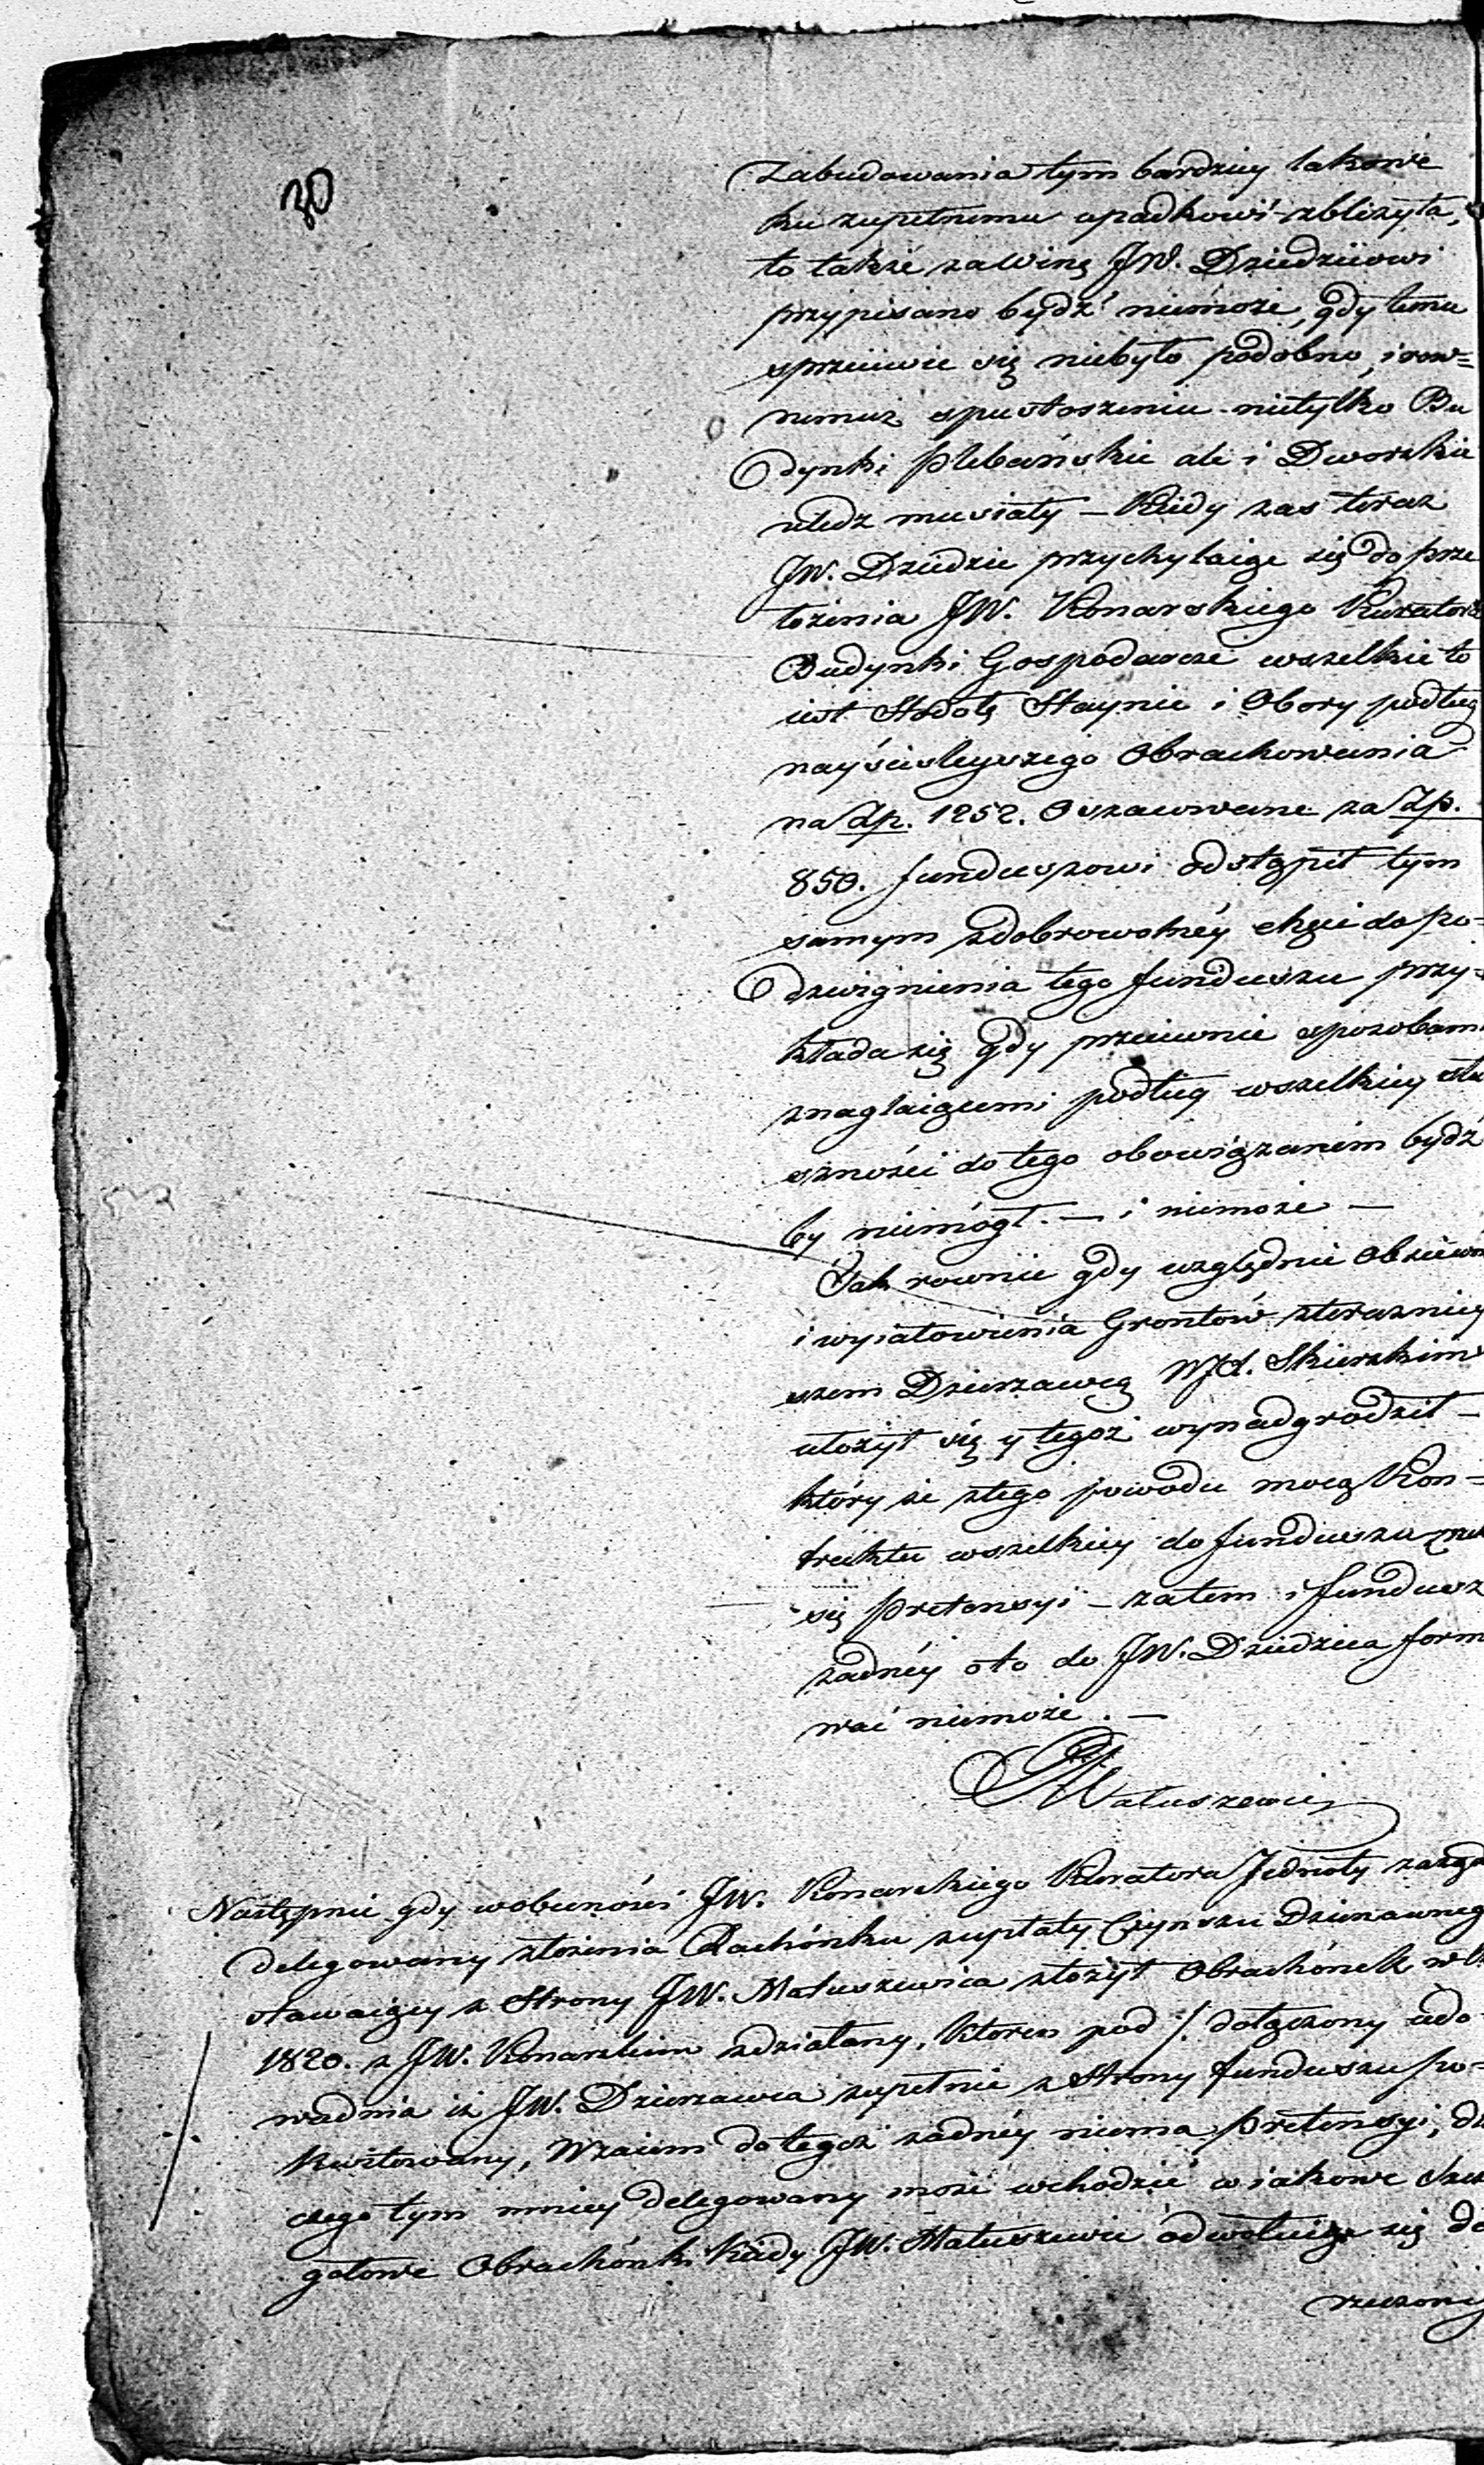 30
Zabudowania tym bardziey takowe
ku zupełnemu upadkowi zbliżyła,
to także za winę JW. Dziedzicowi
przypisano bydź niemoże, gdy temu
sprzeciwic się niebyło podobno, i row=
nemuż spustoszeniu nietylko Bu
dynki Plebańskie ale i Dworskie
uledz musiały – Kiedy zas teraz
JW. Dziedzic przychylaiąc się do prze
łożenia JW. Konarskiego Kuratora
Budynki Gospodarcze wszelkie to
iest Stodołę Staynie i Obory podług
nayścisleyszego Obrachowania
na Złp. 1252. Oszacowane za Złp.
850. funduszowi odstąpił tym
samym z dobrowolnéy chęci do po=
dzwignienia tego funduszu przy=
kłada się gdy przeciwnie sposobami
znaglaiącemi podług wszelkiey słu
szności do tego obowiązanim bydź
by niemógł. – i niemoże –
Jak rownie gdy względnie Obsiewu
i wyiałowienia Grontów z terazniey
szem Dzierzawcą WJd. Skierskim
ułożył się y tegoż wynadgrodził –
który ze ztego powodu mocą Kon=
traktu wszelkiey do funduszu
się Pretensyi – zatem i fundusz
żadnéy oto do JW. Dziedzica form
wać niemoże. –
Matuszewic
Następnie gdy w obecności JW. Konarskiego Kuratora Jednoty zażąd
delegowany złożenia Rachónku zupłaty Czynszu Dzierzawneg
stawaiący z Strony JW. Matuszewica złożył Obrachónek w R
1820. z JW. Konarskim zdziałany, ktoren pod /. dołączony udo=
wadnia iż JW. Dzierzawca zupełnie z Strony funduszu po=
kwitowany, Wzaiem do tegoż żadnéy niema Pretensyi, dla
czego tym mniey delegowany może wchodzić w iakowe
gołowe Obrachónki Kiedy JW. Matuszewic odwołuiąc się do
rzeczoney